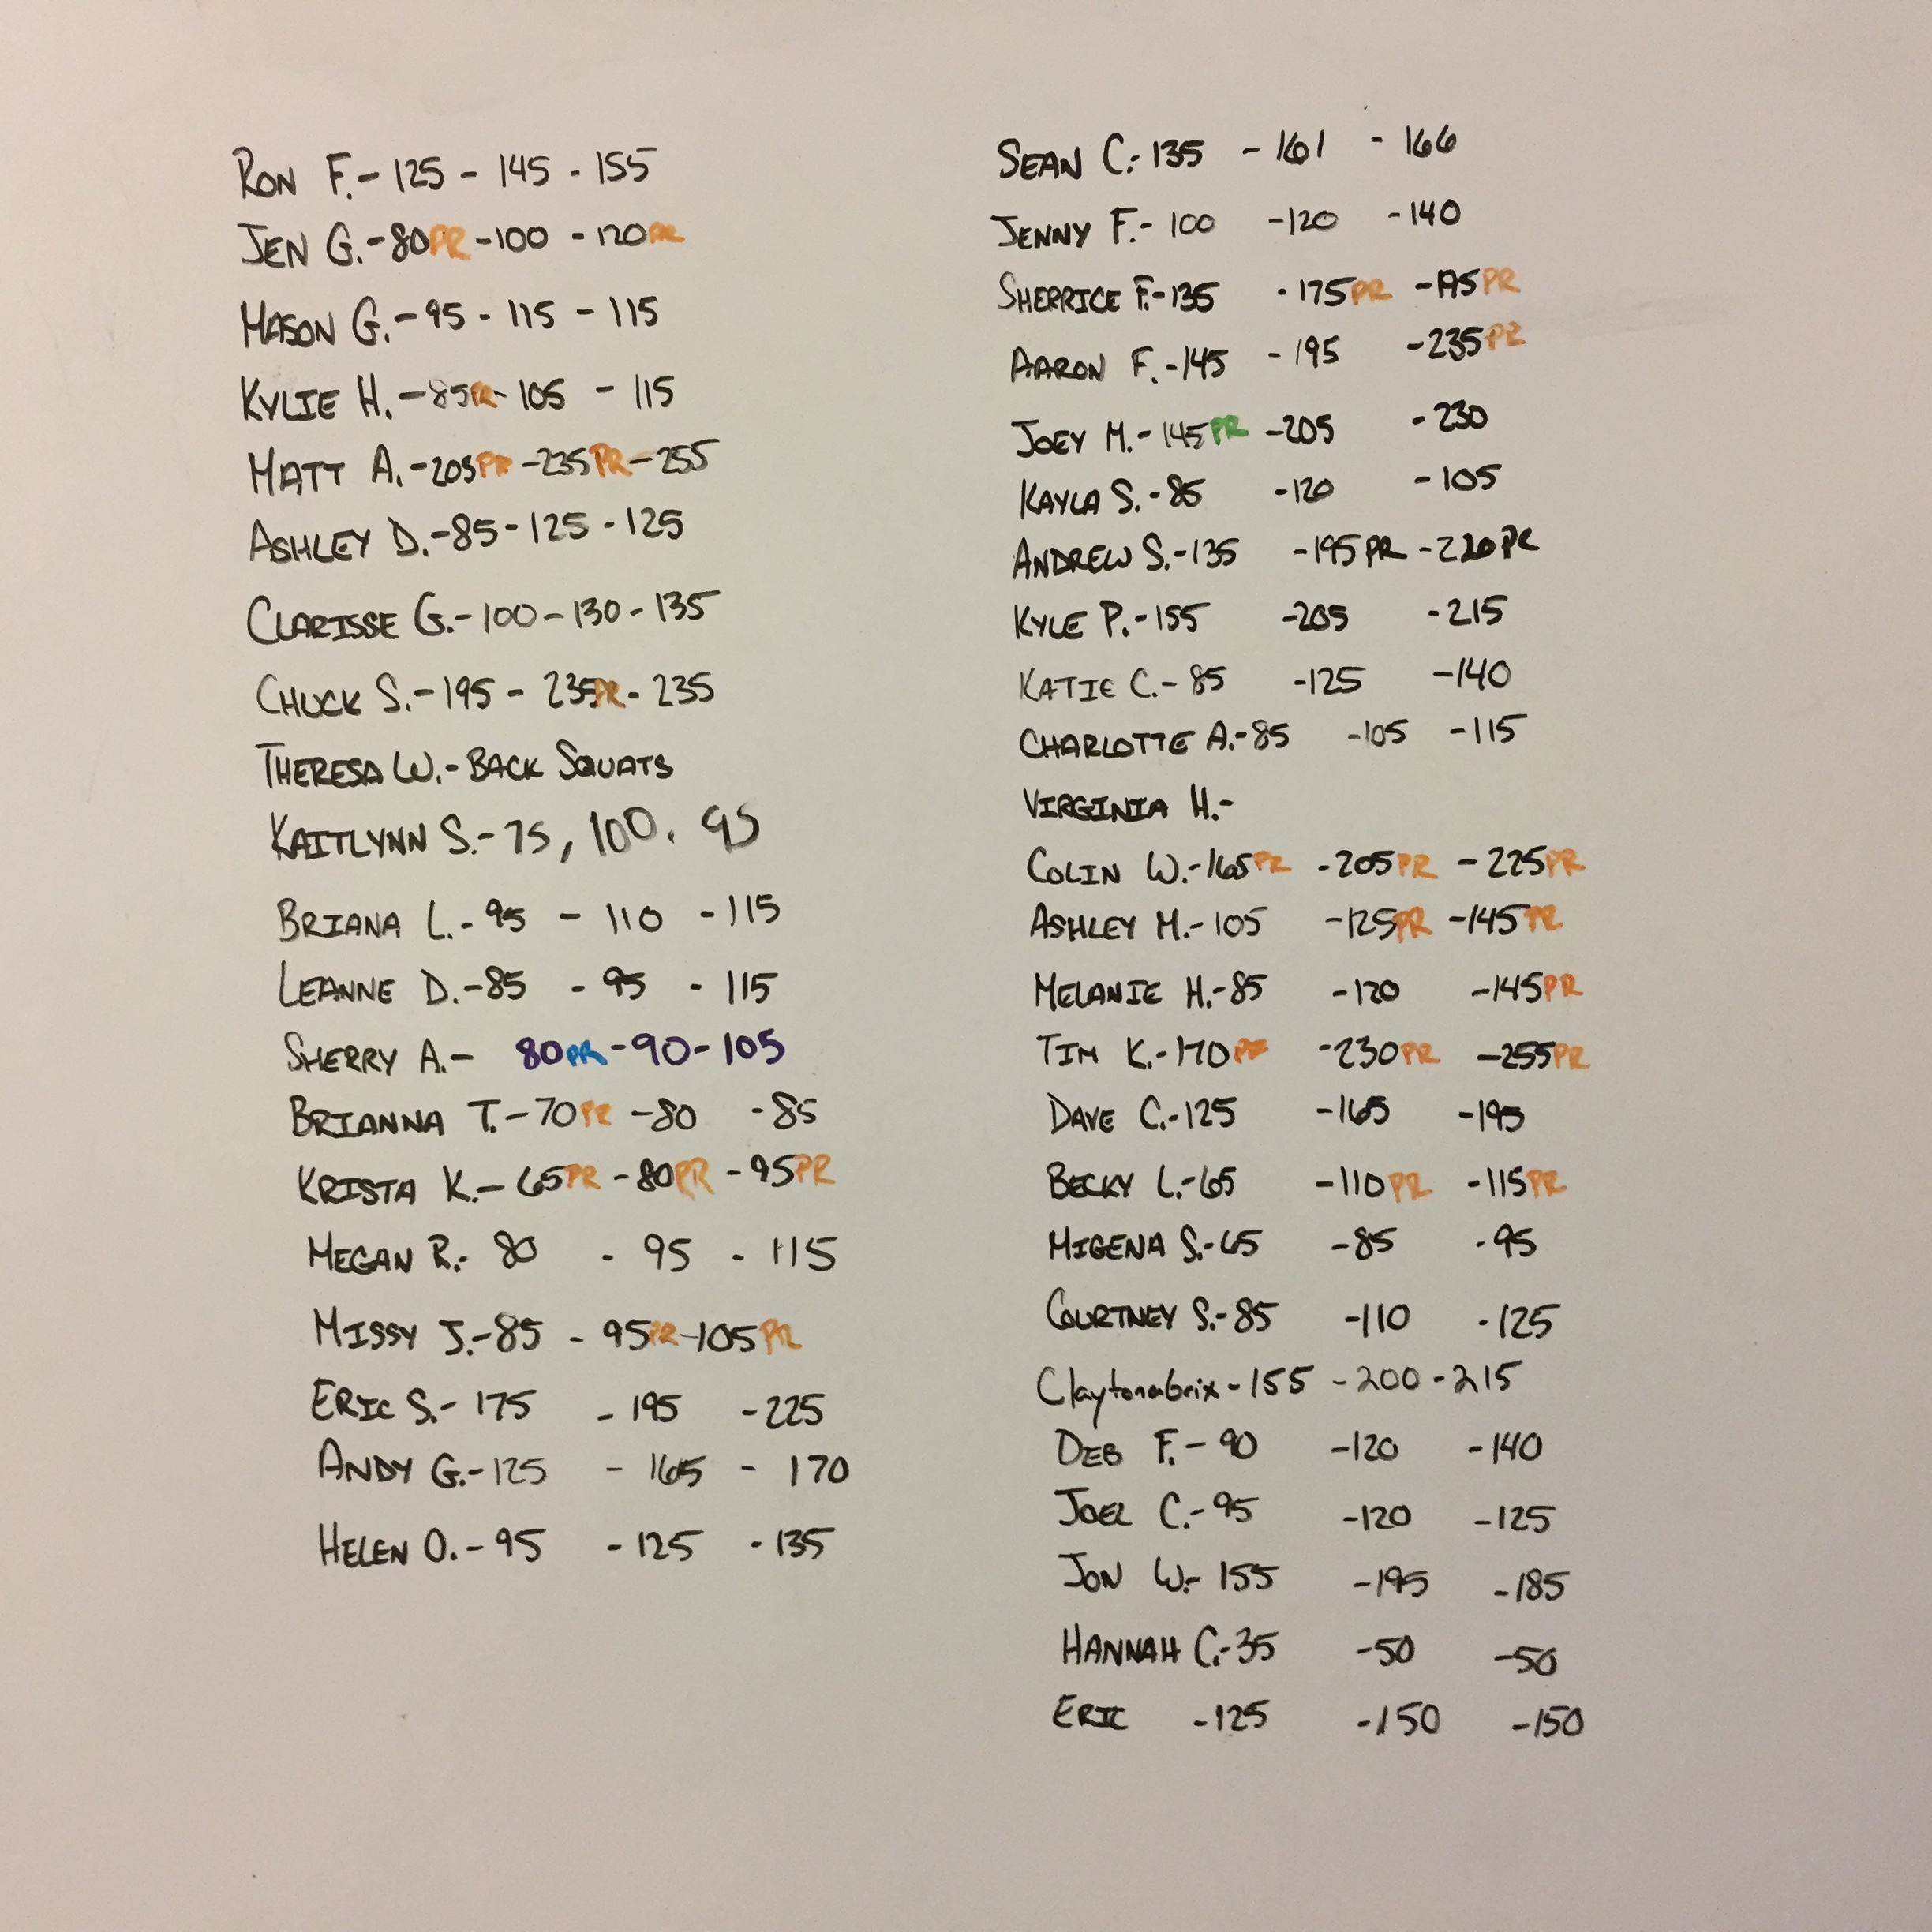 RON F. - 125 - 145 - 155
JEN G. - 80PR - 100 - 120PR
MASON G. - 95 - 115 - 115
KYLIE H. - 85R - 105 - 115
MATT A. - 205PR - 235PR - 255
ASHLEY D. - 85 - 125 - 125
CLARISSE G. - 100 - 130 - 135
CHUCK S. - 195 - 235PR - 235
THERESA W. - BACK SQUATS
KAITLYNN S. - 75, 100. 95
BRIANA L. - 95 - 110 - 115
LEANNE D. - 85 - 95 - 115
SHERRY A. - 80PR - 90 - 105
BRIANNA T. - 70PR - 80 - 85
KRISTA K. - 65PR - 80PR - 95PR
MEGAN R. - 80 - 95 - 115
MISSY J. - 85 - 95PR - 105PR
ERIC S. - 175 - 195 - 225
ANDY G. - 125 - 165 - 170
HELEN O. - 95 - 125 - 135
SEAN C. - 135 - 161 - 166
JENNY F. - 100 - 120 - 140
SHERRICE F. - 135 - 175PR - 195PR
AARON F. - 145 - 195 - 235PR
JOEY M. - 145PR - 205 - 230
KAYLA S. - 85 - 120 - 105
ANDREW S. - 135 - 195PR - 220PR
KYLE P. - 155 - 205 - 215
KATIE C. - 85 - 125 - 140
CHARLOTTE A. - 85 - 105 - 115
VIRGINIA H. -
COLIN W. - 165PR - 205PR - 225PR
ASHLEY M. - 105 - 125PR - 145PR
MELANIE H. - 85 - 120 - 145PR
TIM K. - 170PR - 230PR - 255PR
DAVE C. - 125 - 165 - 195
BECKY L. - 65 - 110PR - 115PR
MIGENA S. - 65 - 85 - 95
COURTNEY S. - 85 - 110 - 125
- 155 - 200 - 215
DEB F. - 90 - 120 - 140
JOEL C. - 95 - 120 - 125
JON W. - 155 - 195 - 185
HANNAH C. - 35 - 50 - 50
ERIC - 125 - 150 - 150